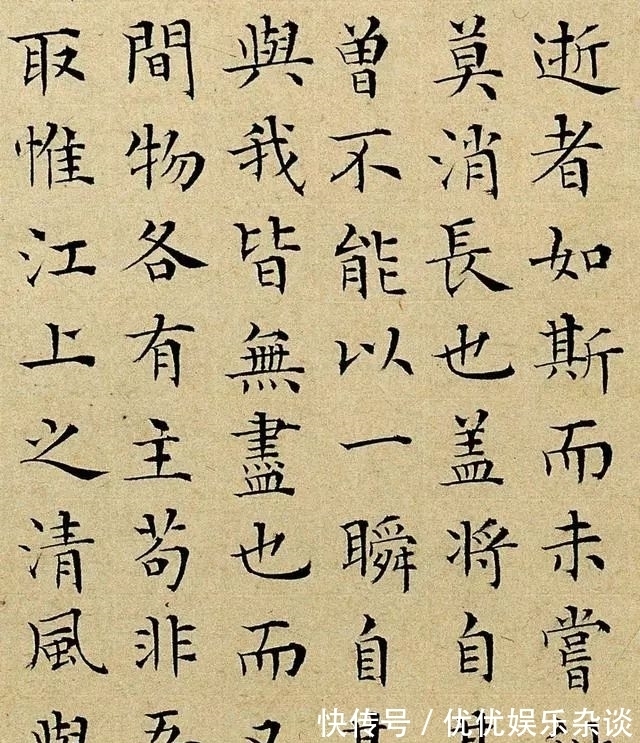 逝者如斯而未嘗
莫消長也盖將自
曾不能以一瞬自其
與我皆無盡也而又
間物各有主苟非吾
取惟江上之清風與
快传号 / 优优娱乐杂谈